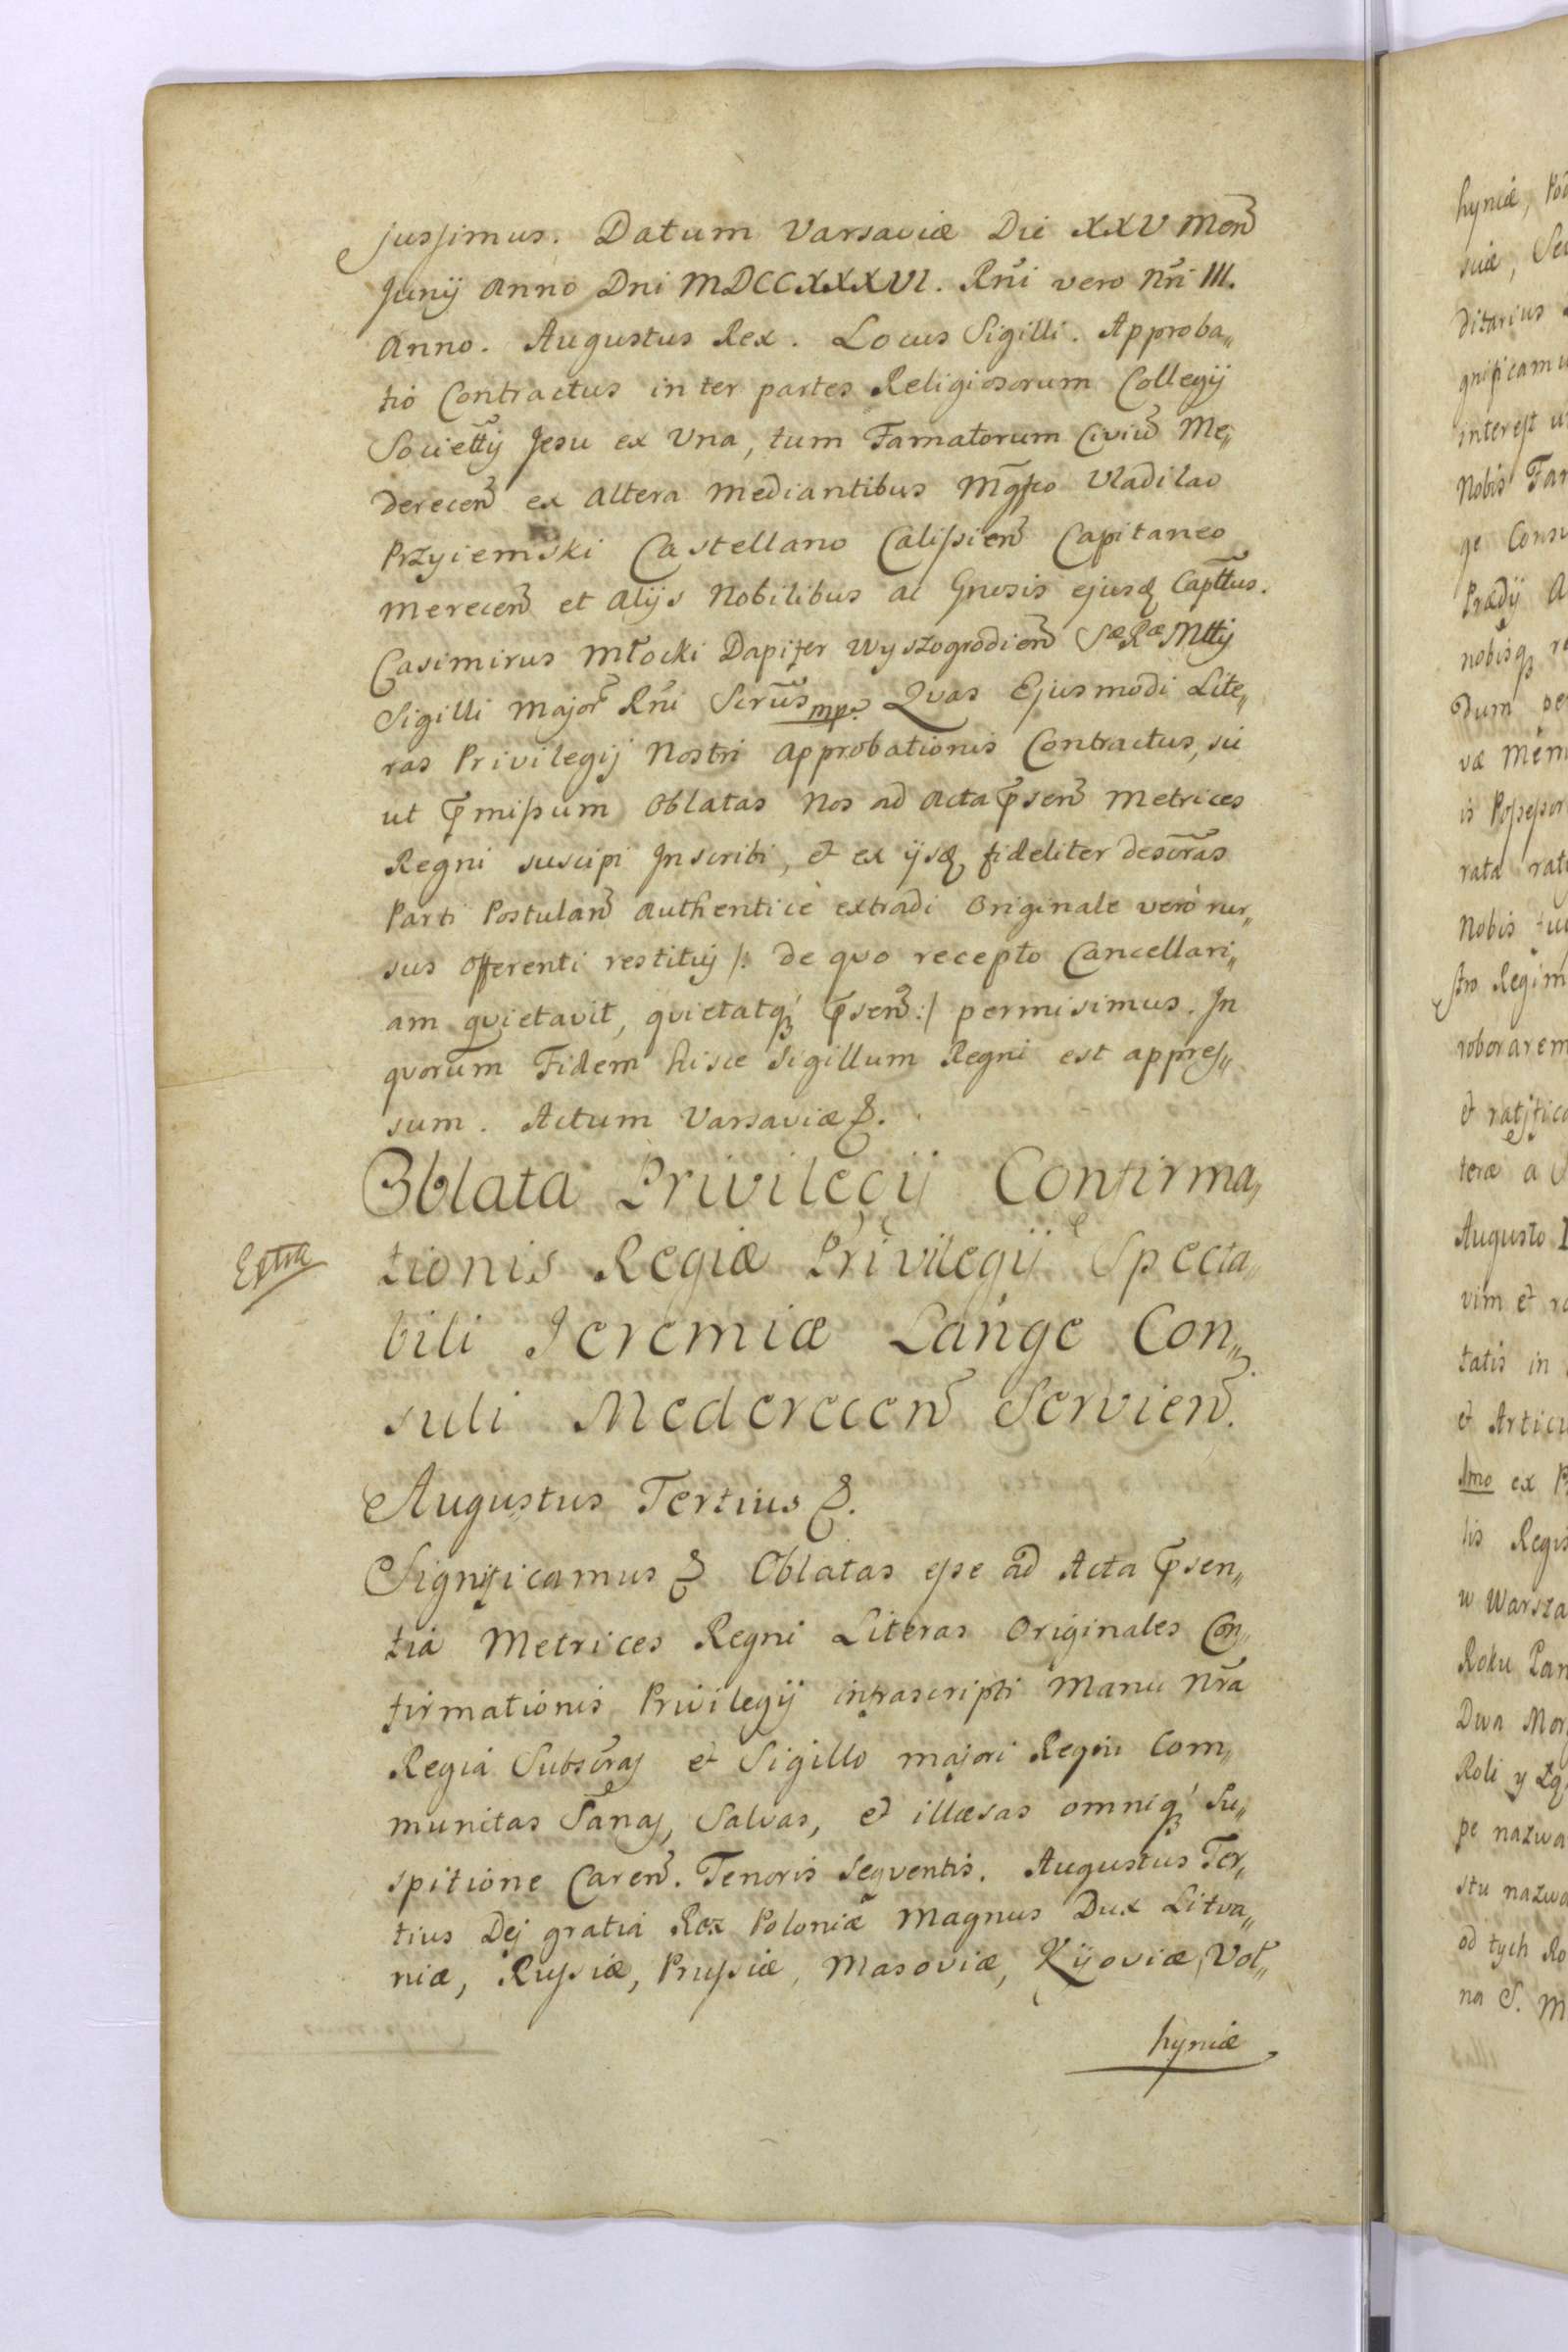 jussimus. Datum Varsaviæ Die XXV Men̄
Junij Anno Dni MDCCXXXVI. Rn̄i vero Nr̄i III.
Anno. Augustus Rex. Locus Sigilli. Approba„
tio Contractus inter partes Religiosorum Collegij
Societt̄ij Jesu ex Una, tum Famatorum Civiū Me„
derecen̄ ex Altera mediantibus Mḡfco Vladilao
Przyiemski Castellano Calissien̄ Capitaneo
Merecen̄ et Alijs Nobilibus ac Gnosis ejusq̨ Captt̄us.
Casimirus Młocki Dapifer Wyszogrodien̄ Sæ Ræ Mttij
Sigilli Major̄ Rn̄i Scrūs mp. Quas Ejusmodi Lite„
ras Privilegij Nostri Approbationis Contractus, sic
ut p̄missum Oblatas Nos ad Acta p̄sen̄ Metrices
Regni suscipi Inscribi, et ex ijsq̨ fideliter descr̄as
Parti Postulan̄ authenticè extradi Originale verò rur„
sus Offerenti restituj /: de quo recepto Cancellari„
am quietavit, quietatq́ p̄sen̄ :/ permisimus. In
quorum Fidem hisce Sigillum Regni est appres„
sum. Actum Varsaviæ &.
Oblata Privilegij Confirma„
tionis Regiæ Privilegij Specta„
bili Jeremiæ Lange Con„
suli Mederecen̄ Servien̄.
Extra
Augustus Tertius &.
Significamus & Oblatas esse ad Acta p̄sen„
tia Metrices Regni Literas Originales Con„
firmationis Privilegij infrascripti Manu Nr̄a
Regia Subscr̄as et Sigillo majori Regni Com„
munitas Sanas, Salvas, et illæsas omniq́ Su„
spitione Caren̄. Tenoris Sequentis. Augustus Ter„
tius Dej gratia Rex Poloniæ Magnus Dux Litva„
niæ, Russiæ, Prussiæ, Masoviæ, Kijoviæ, Vol„
hyniæ
hyniæ,
ditarius
gnificamu
interest
Nobis
Prædij
nobisq̨
rata
Nobis
stro Regim
roborarem
teræ a
Augusto
vim et
tatis in
et Articu
Imo ex
lis Regis
w Warsza
Roku Pan
Dwa Mor
Roli y
pe nazwa
stu nazwa
od tych Ro
na S. M